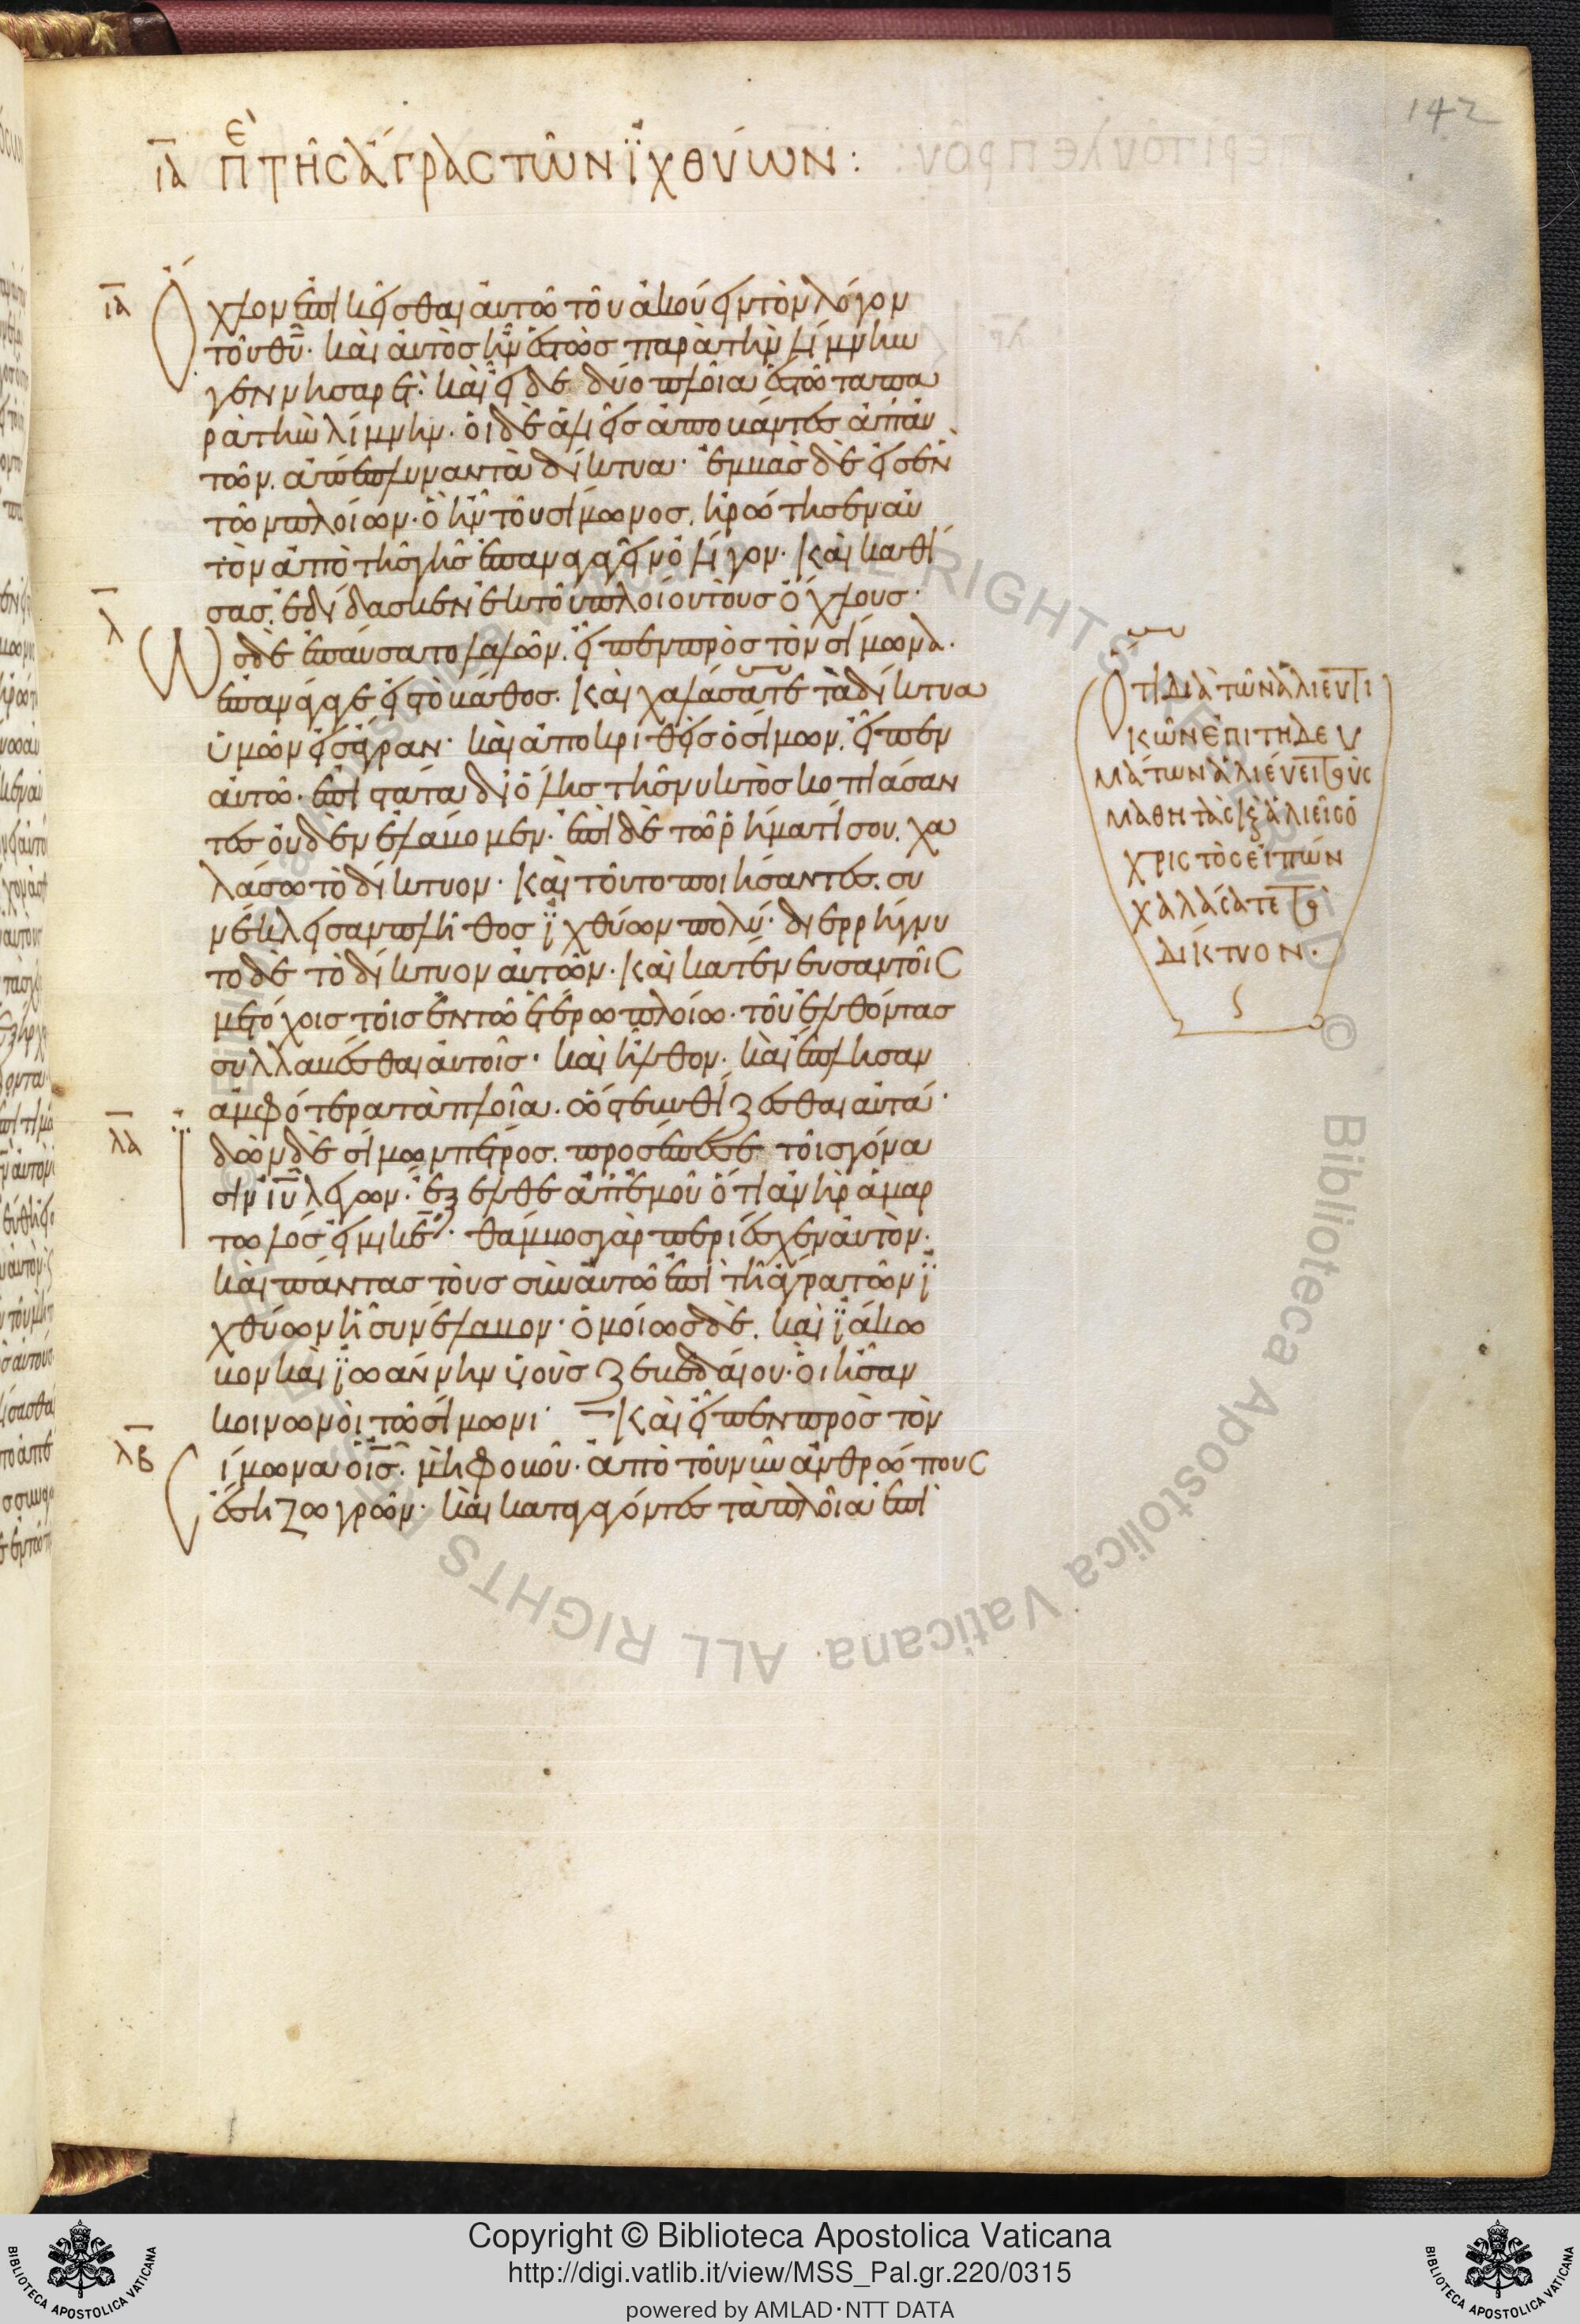 142
ια πε τῆς ἄγρας τῶν ϊχθύων:
ια ὄ
χλον ἐπικεῖσθαι αὐτῶ τοῦ ἀκούειν τὸν λόγον
τοῦ θυ· καὶ αὐτὸς ἦν ἑστὼς παρὰ τὴν λίμνην
γεννησαρέτ· καὶ εἶδε δύο πλοῖα ἑστῶτα πα
ρὰ τὴν λίμνην· οἱ δὲ ἁλιεῖς ἀποβάντες ἀπ' αὐ
τῶν. ἀπέπλυναν τὰ δίκτυα· ἐμβὰς δὲ εἰς ἓν
τῶν πλοίων· ὃ ἦν τοῦ σίμωνος. ἠρώτησεν αὐ
τὸν ἀπὸ τῆς γῆς ἐπαναγαγεῖν ὀλίγον· καὶ καθί
σας. ἐδίδασκεν ἐκ τοῦ πλοίου τοὺς ὄχλους·
λ ὡ
ς δὲ ἐπαύσατο λαλῶν. εἶπεν πρὸς τὸν σίμωνα.
ἐπανάγαγε εἰς τὸ βάθος· καὶ χαλάσατε τὰ δίκτυα
ὑμῶν εἰς ἄγραν· καὶ ἀποκριθεὶς ὁ σίμων. εἶπεν
αὐτῶ· ἐπιστάτα δι' ὅλης τῆς νυκτὸς κοπιάσαν
τες οὐδὲν ἐλάβομεν· ἐπὶ δὲ τῶ ῥήματί σου. χα
λάσω τὸ δίκτυον· καὶ τοῦτο ποιήσαντες. συ
νέκλεισαν πλῆθος ϊχθύων πολύ· διερρήγνυ
το δὲ τὸ δίκτυον αὐτῶν· καὶ κατένευσαν τοῖς
μετόχοις τοῖς ἐν τῶ ἑτέρω πλοίω· τοῦ ἐλθόντας
συλλαβέσθαι αὐτοῖς· καὶ ἦλθον· καὶ ἔπλησαν
ἀμφότερα τὰ πλοῖα. ὥστε βυθίζεσθαι αὐτά·
λα ϊ
δὼν δὲ σίμων πέτρος. προσέπεσε τοῖς γόνα
σιν ιυ λέγων· ἔξελθε ἀπ' ἐμοῦ ὅτι ἀνὴρ ἁμαρ
τωλός εἰμι κε· θάμβος γὰρ περιέσχεν αὐτὸν.
καὶ πάντας τοὺς σὺν αὐτῶ ἐπὶ τῆ ἄγρα τῶν ϊ
χθύων ἧ συνέλαβον· ὁμοίως δὲ. καὶ ϊάκω
βον καὶ ϊωάννην υἱοὺς ζεβεδαίου· οἳ ἦσαν
κοινωνοὶ τῶ σίμωνι· καὶ εἶπεν πρὸς τὸν
λβ σ
ίμωνα ὁ ις. μὴ φοβοῦ· ἀπὸ τοῦ νῦν ἀνθρώπους
ἔσῃ ζωγρῶν· καὶ καταγαγόντες τὰ πλοῖα ἐπὶ
Ὅτι διὰ τῶν ἁλιευτι
κῶν ἐπιτηδευ
μάτων ἁλιεύει τοὺς
μαθητὰς κ ἁλιεῖς ὁ
χριστὸς εἰπών
χαλάσατε τὸ
δίκτυον·
Copyright © Biblioteca Apostolica Vaticana
http://digi.vatlib.it/view/MSS_Pal.gr.220/0315
powered by AMLAD·NTT DATA